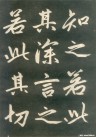 知之若此
其深言之
若此其切